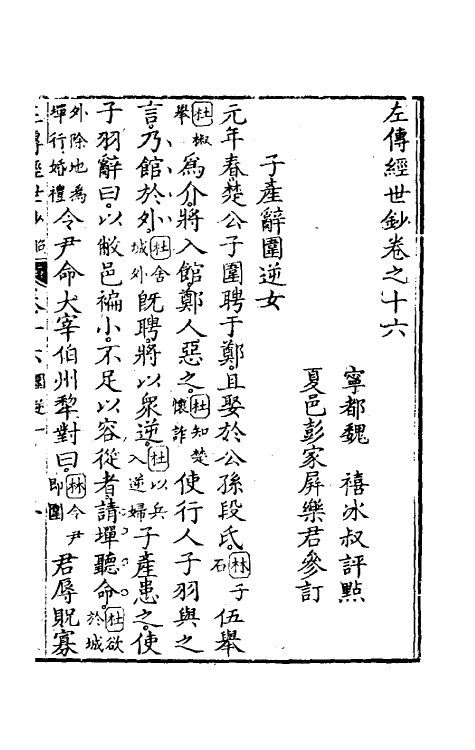 左傳經世鈔卷之十六
寧都魏　禧冰叔評點
夏邑彭家屏樂君參訂
子產辭圍逆女
元年春楚公子圍聘于鄭且娶於公孫段氏林子石伍舉
杜椒舉爲介將入館鄭人惡之杜知楚懷詐使行人子羽與之
言乃館於外杜舍城外旣聘將以衆逆杜以兵入逆婦子產患之使
子羽辭曰以敝邑褊小不足以容從者請墠聽命杜欲於城
外除地爲墠行婚禮令尹命大宰伯州犂對曰林令尹即圍君辱貺寡